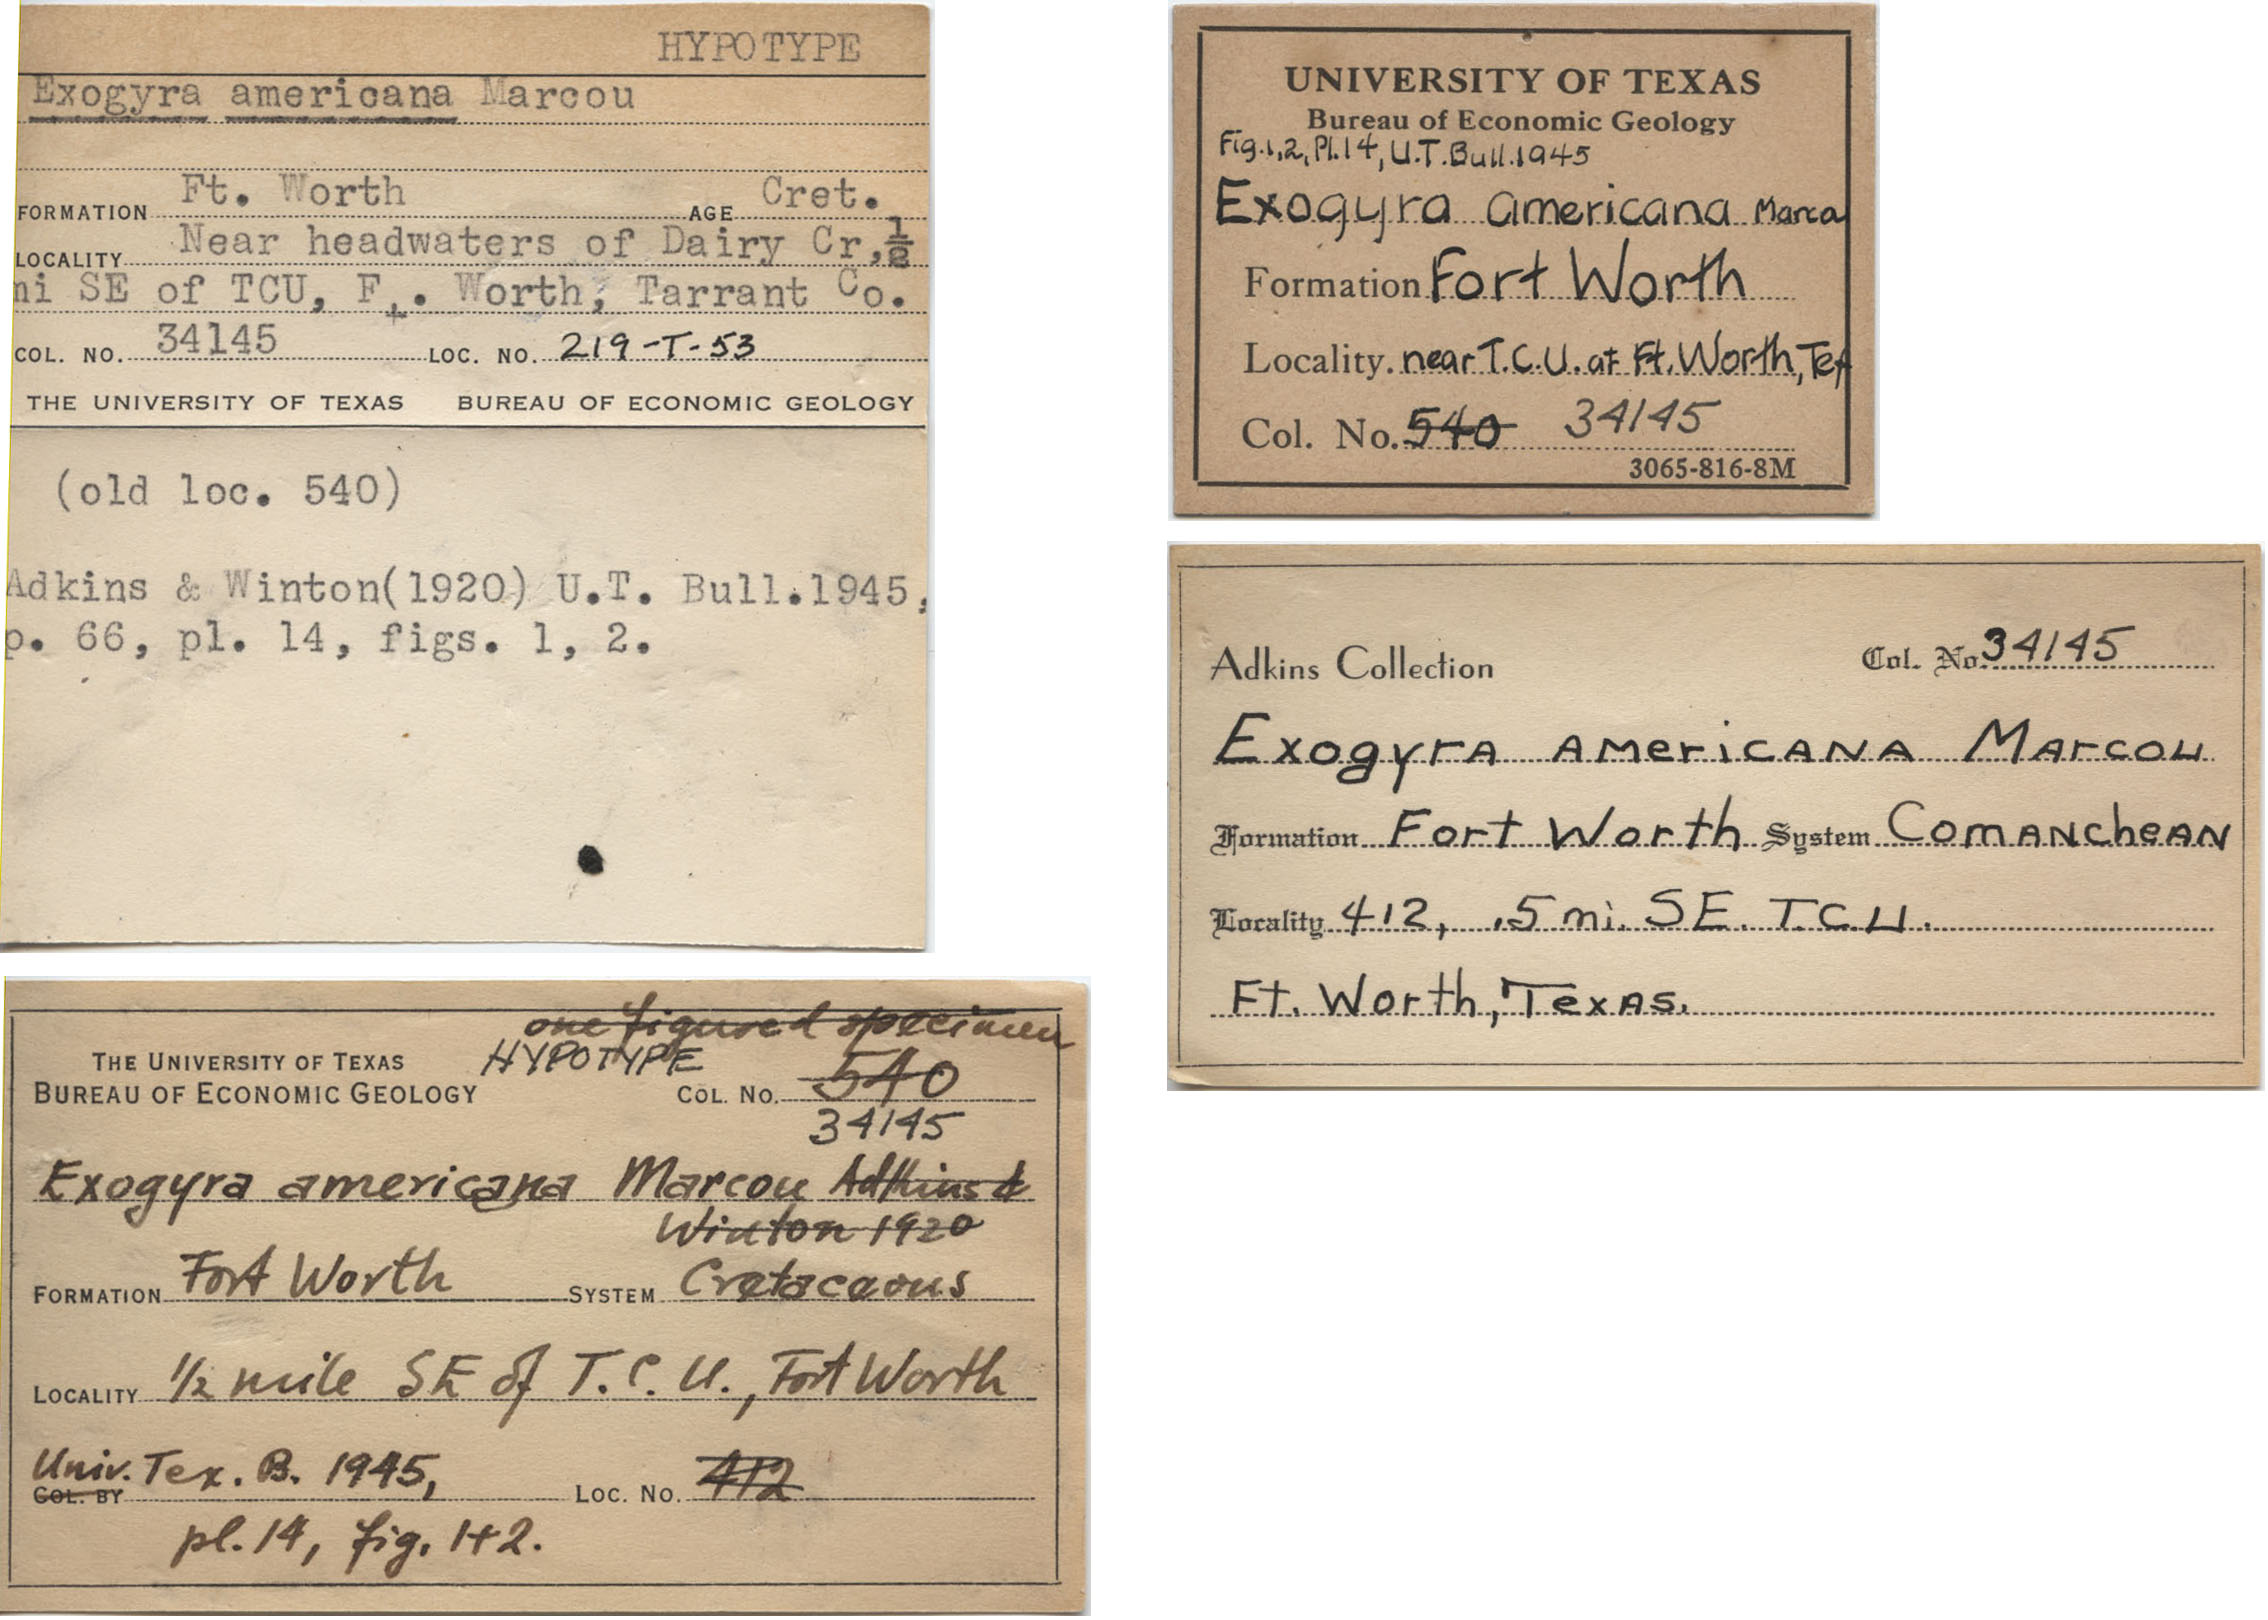 HYPOTYPE
Exogyra americana Marcou
FORMATION Ft. Worth AGE Cret.
LOCALITY Near headwaters of Dairy Cr, 1/2
mi SE of TCU, Ft. Worth, Tarrant Co.
COL. NO. 34145 LOC. NO. 219-T-53
THE UNIVERSITY OF TEXAS BUREAU OF ECONOMIC GEOLOGY
(old loc. 540)
Adkins & Winton(1920) U.T. Bull.1945,
p. 66, pl. 14, figs. 1, 2.
UNIVERSITY OF TEXAS
Bureau of Economic Geology
Fig.1,2, Pl.14, U.T.Bull.1945
Exogyra americana Marco
Formation Fort Worth
Locality. near T.C.U. at Ft. Worth, Tex
Col. No. 540 34145
3065-816-8M
Adkins Collection Col. No. 34145
Exogyra americana Marcou
Formation Fort Worth System Comanchean
Locality 412, .5 mi. SE. T.C.U.
Ft. Worth, Texas.
one figured specimen
THE UNIVERSITY OF TEXAS HYPOTYPE
BUREAU OF ECONOMIC GEOLOGY COL. NO. 540
34145
Exogyra americana Marcou Adkins &
Winton 1920
FORMATION Fort Worth SYSTEM Cretaceous
LOCALITY 1/2 mile SE of T.C.U., Fort Worth
Univ. Tex. B. 1945,
COL. BY LOC. NO. 412
pl. 14, fig. 1+2.